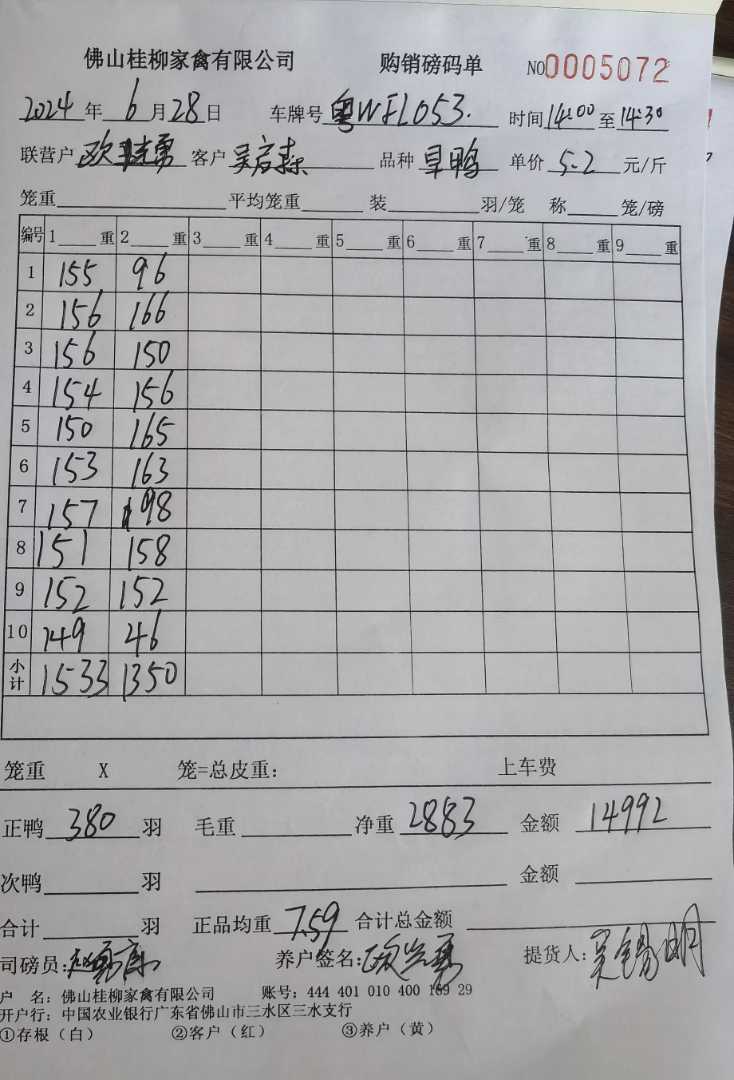 佛山桂柳家禽有限公司 购销磅码单 NO0005072
2024年6月28日 车牌号粤WFL053. 时间14:00至14:30
联营户 欧 勇 客户 吴 森 品种 旱鸭 单价 5.2 元/斤
笼重 平均笼重 装 羽/笼 称 笼/磅
编号 1 重 2 重 3 重 4 重 5 重 6 重 7 重 8 重 9 重
1 155 96
2 156 166
3 156 150
4 154 156
5 150 165
6 153 163
7 157 98
8 151 158
9 152 152
10 149 46
小计 1533 1350
笼重 X 笼=总皮重: 上车费
正鸭 380 羽 毛重 净重 2883 金额 14992
次鸭 羽 金额
合计 羽 正品均重 7.59 合计总金额
司磅员: 养户签名: 提货人: 吴锡明
户 名: 佛山桂柳家禽有限公司 账号: 444 401 010 400 169 29
开户行: 中国农业银行广东省佛山市三水区三水支行
①存根(白) ②客户(红) ③养户(黄)